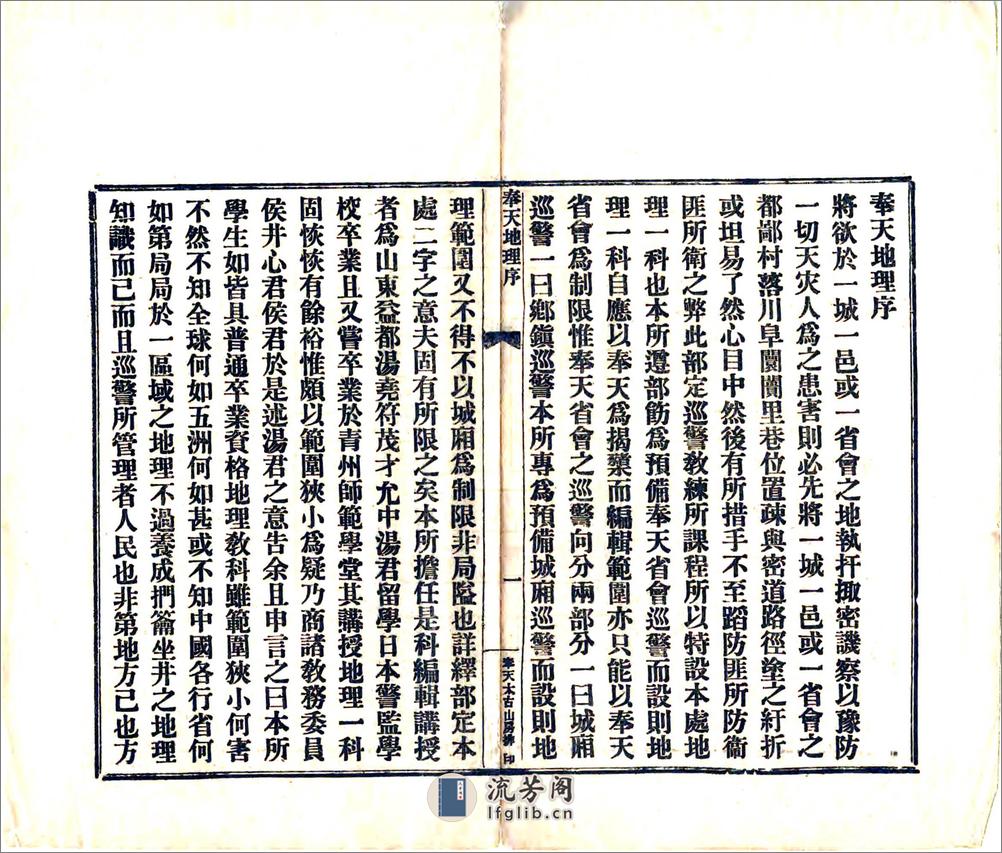 奉天地理序
將欲於一城一邑或一省會之地執扞掫密譏察以豫防
一切天灾人爲之患害則必先將一城一邑或一省會之
都鄙村落川阜闤闠里巷位置疎與密道路徑塗之紆折
或坦易了然心目中然後有所措手不至蹈防匪所防衞
匪所衞之弊此部定巡警敎練所課程所以特設本處地
理一科也本所遵部飭爲預備奉天省會巡警而設則地
理一科自應以奉天爲揭櫫而編輯範圍亦只能以奉天
省會爲制限惟奉天省會之巡警向分兩部分一曰城厢
巡警一曰鄉鎭巡警本所專爲預備城厢巡警而設則地
奉天地理序
一
奉天太古山房排印
理範圍又不得不以城厢爲制限非局隘也詳繹部定本
處二字之意夫固有所限之矣本所擔任是科編輯講授
者爲山東益都湯堯符茂才允中湯君留學日本警監學
校卒業且又嘗卒業於青州師範學堂其講授地理一科
固恢恢有餘裕惟頗以範圍狹小爲疑乃商諸敎務委員
侯井心君侯君於是述湯君之意吿余且申言之曰本所
學生如皆具普通卒業資格地理敎科雖範圍狹小何害
不然不知全球何如五洲何如甚或不知中國各行省何
如第局局於一區域之地理不過養成捫籥坐井之地理
知識而已而且巡警所管理者人民也非第地方已也方
流芳阁
lfglib.cn